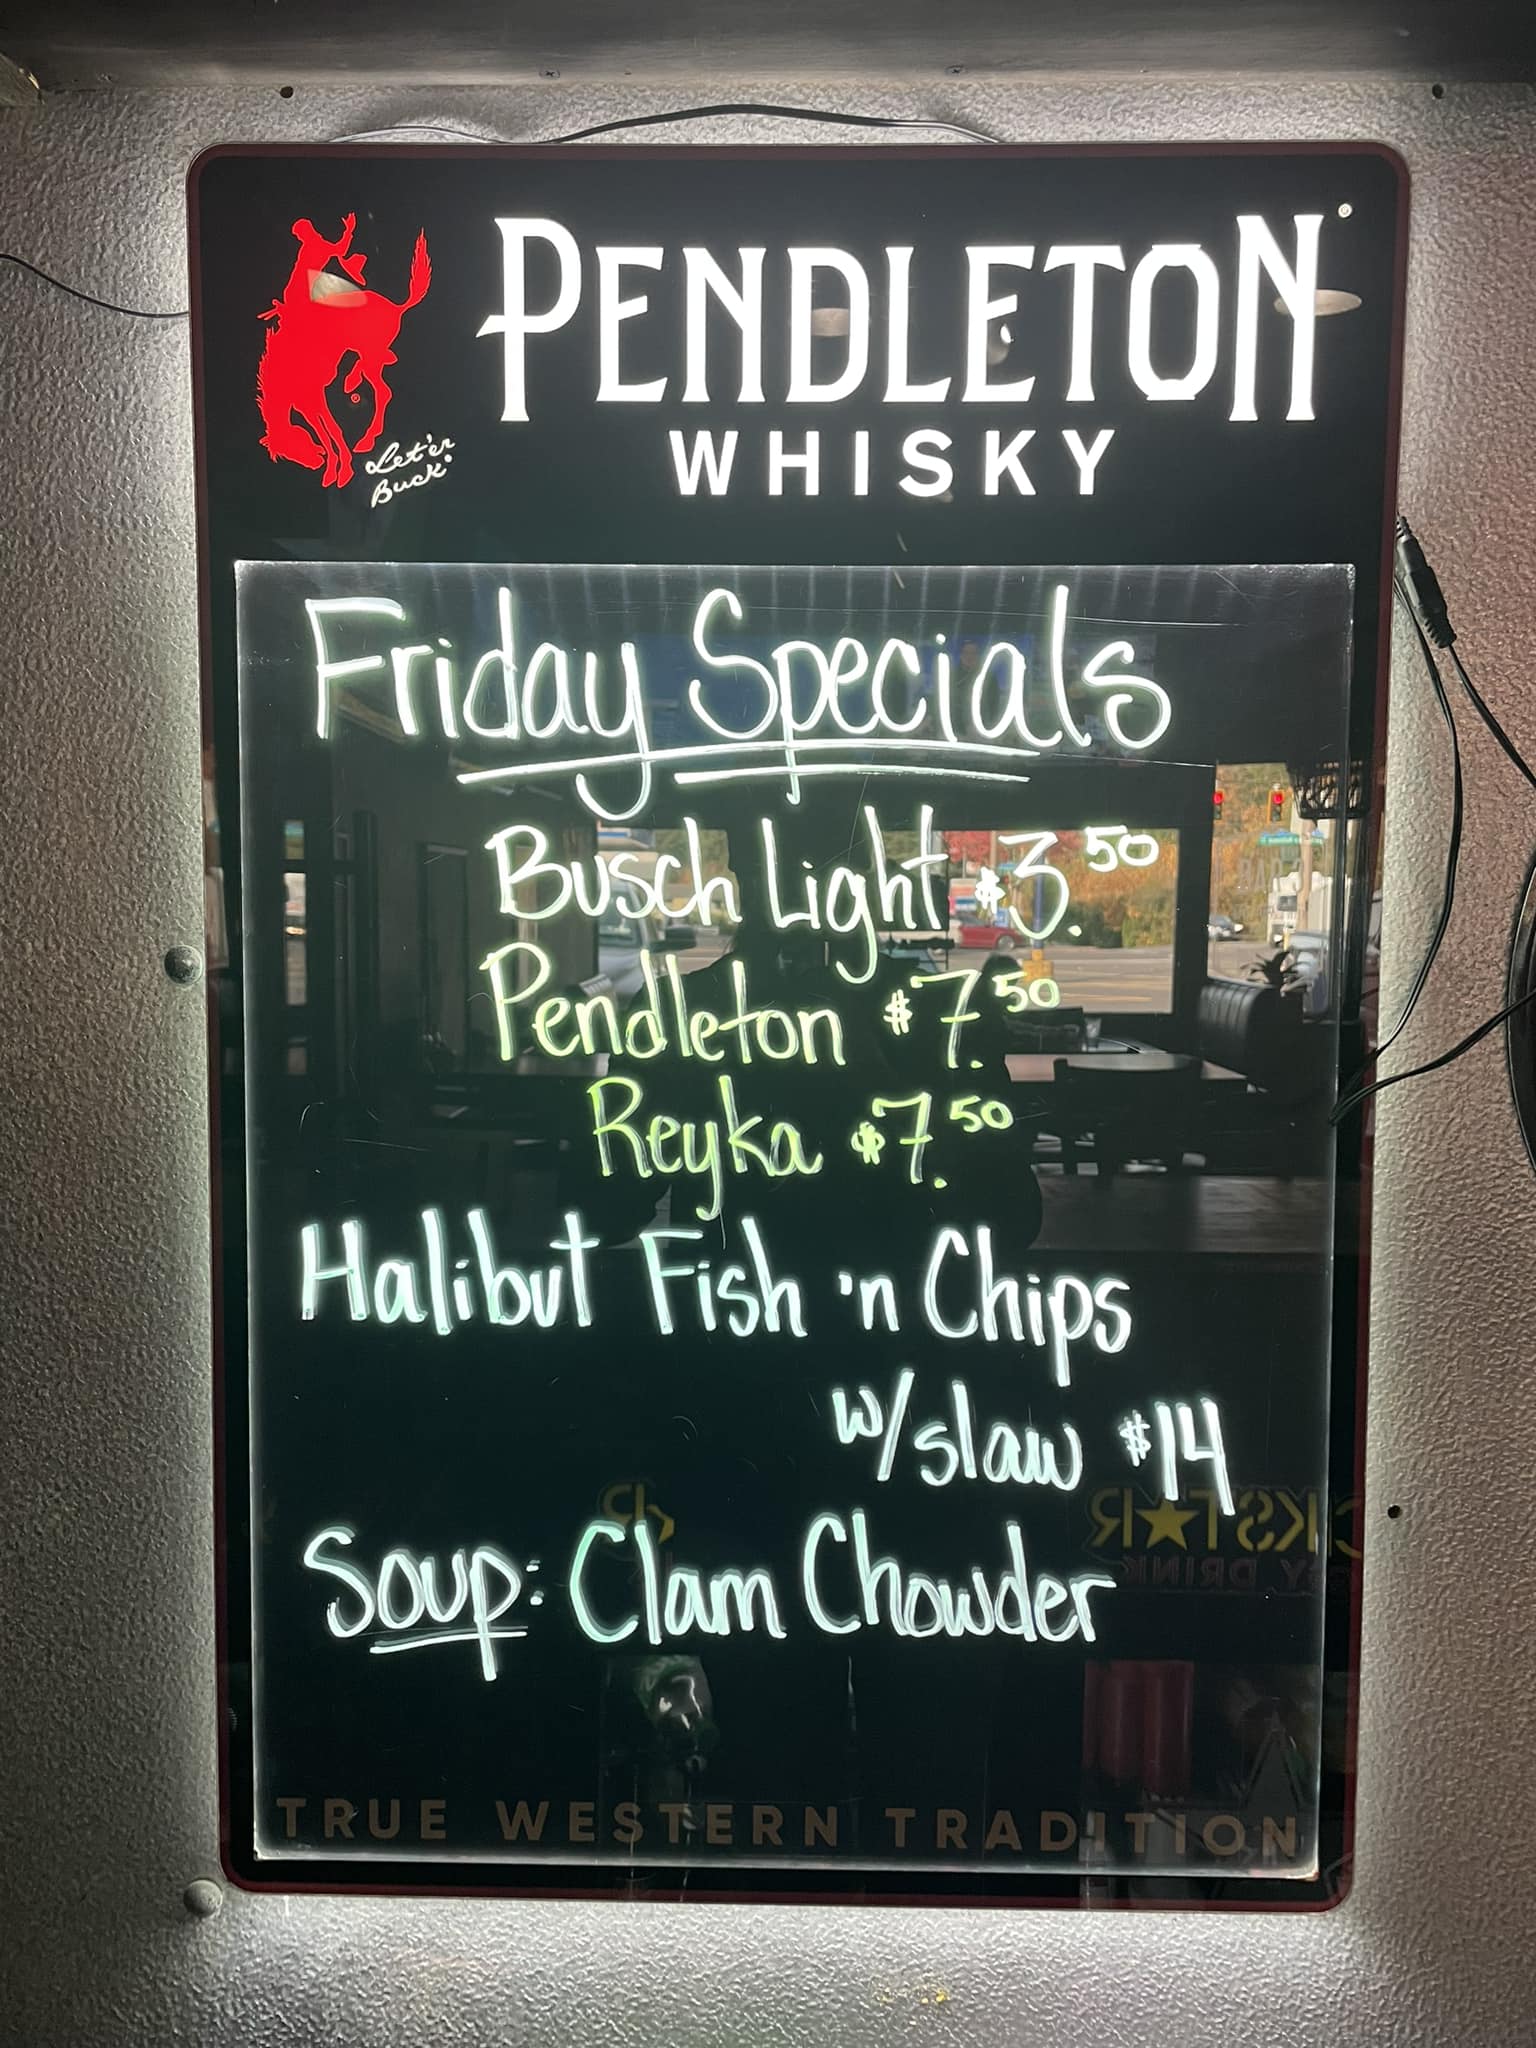 PENDLETON®
WHISKY
Let'er
Buck®
Friday Specials
Busch Light $3.50
Pendleton $7.50
Reyka $7.50
Halibut Fish 'n Chips
w/slaw $14
Soup: Clam Chowder
TRUE WESTERN TRADITION